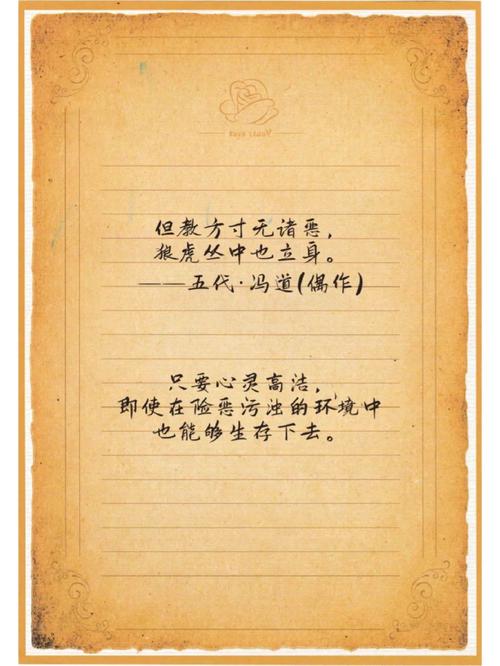 但教方寸无诸恶，
狼虎丛中也立身。
——五代·冯道(偶作)
只要心灵高洁，
即使在险恶污浊的环境中
也能够生存下去。